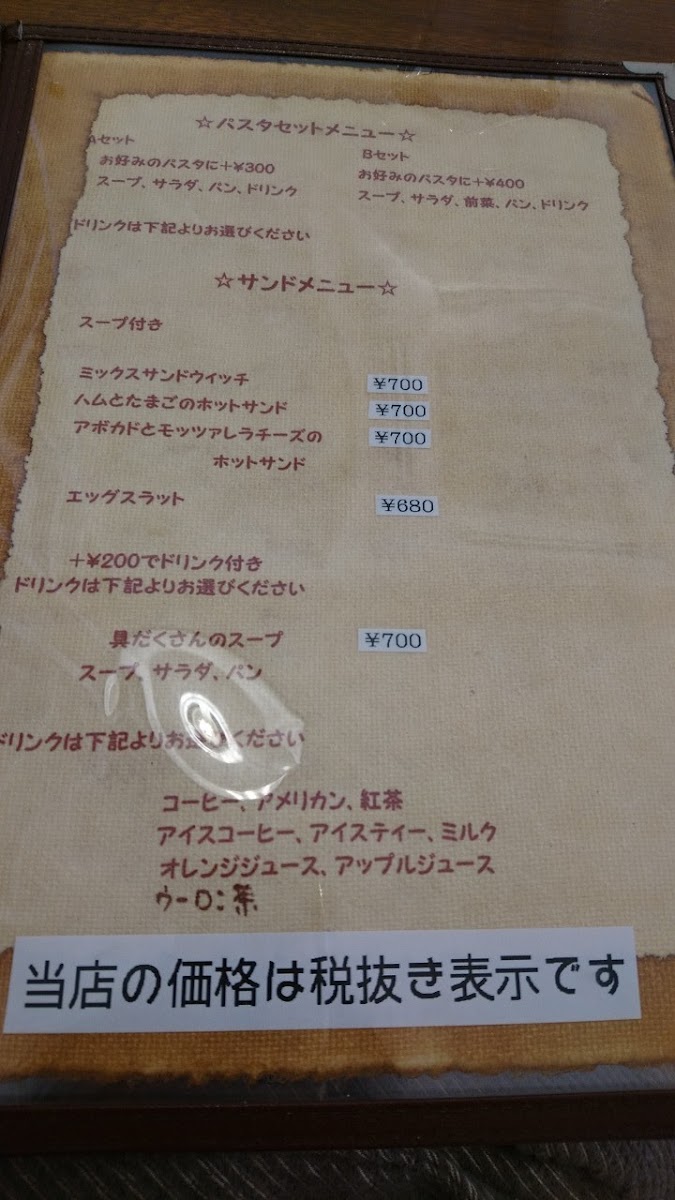 ☆パスタセットメニュー☆
Aセット
お好みのパスタに+¥300
スープ、サラダ、パン、ドリンク
Bセット
お好みのパスタに+¥400
スープ、サラダ、前菜、パン、ドリンク
ドリンクは下記よりお選びください
☆サンドメニュー☆
スープ付き
ミックスサンドウイッチ ¥700
ハムとたまごのホットサンド ¥700
アボカドとモッツァレラチーズの ¥700
ホットサンド
エッグスラット ¥680
+¥200でドリンク付き
ドリンクは下記よりお選びください
具だくさんのスープ ¥700
スープ、サラダ、パン
ドリンクは下記よりお選びください
コーヒー、アメリカン、紅茶
アイスコーヒー、アイスティー、ミルク
オレンジジュース、アップルジュース
ウーロン茶
当店の価格は税抜き表示です